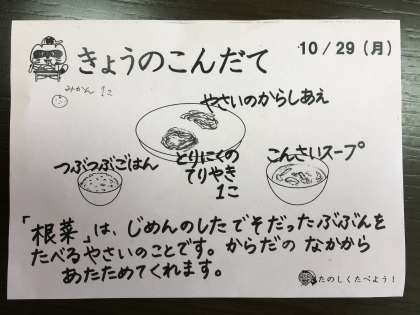 きょうのこんだて
10/29(月)
みかん 1こ
やさいのからしあえ
つぶつぶごはん
とりにくの
てりやき
1こ
こんさいスープ
「根菜」は、じめんのしたでそだったぶぶんを
たべるやさいのことです。からだのなかから
あたためてくれます。
たのしくたべよう!